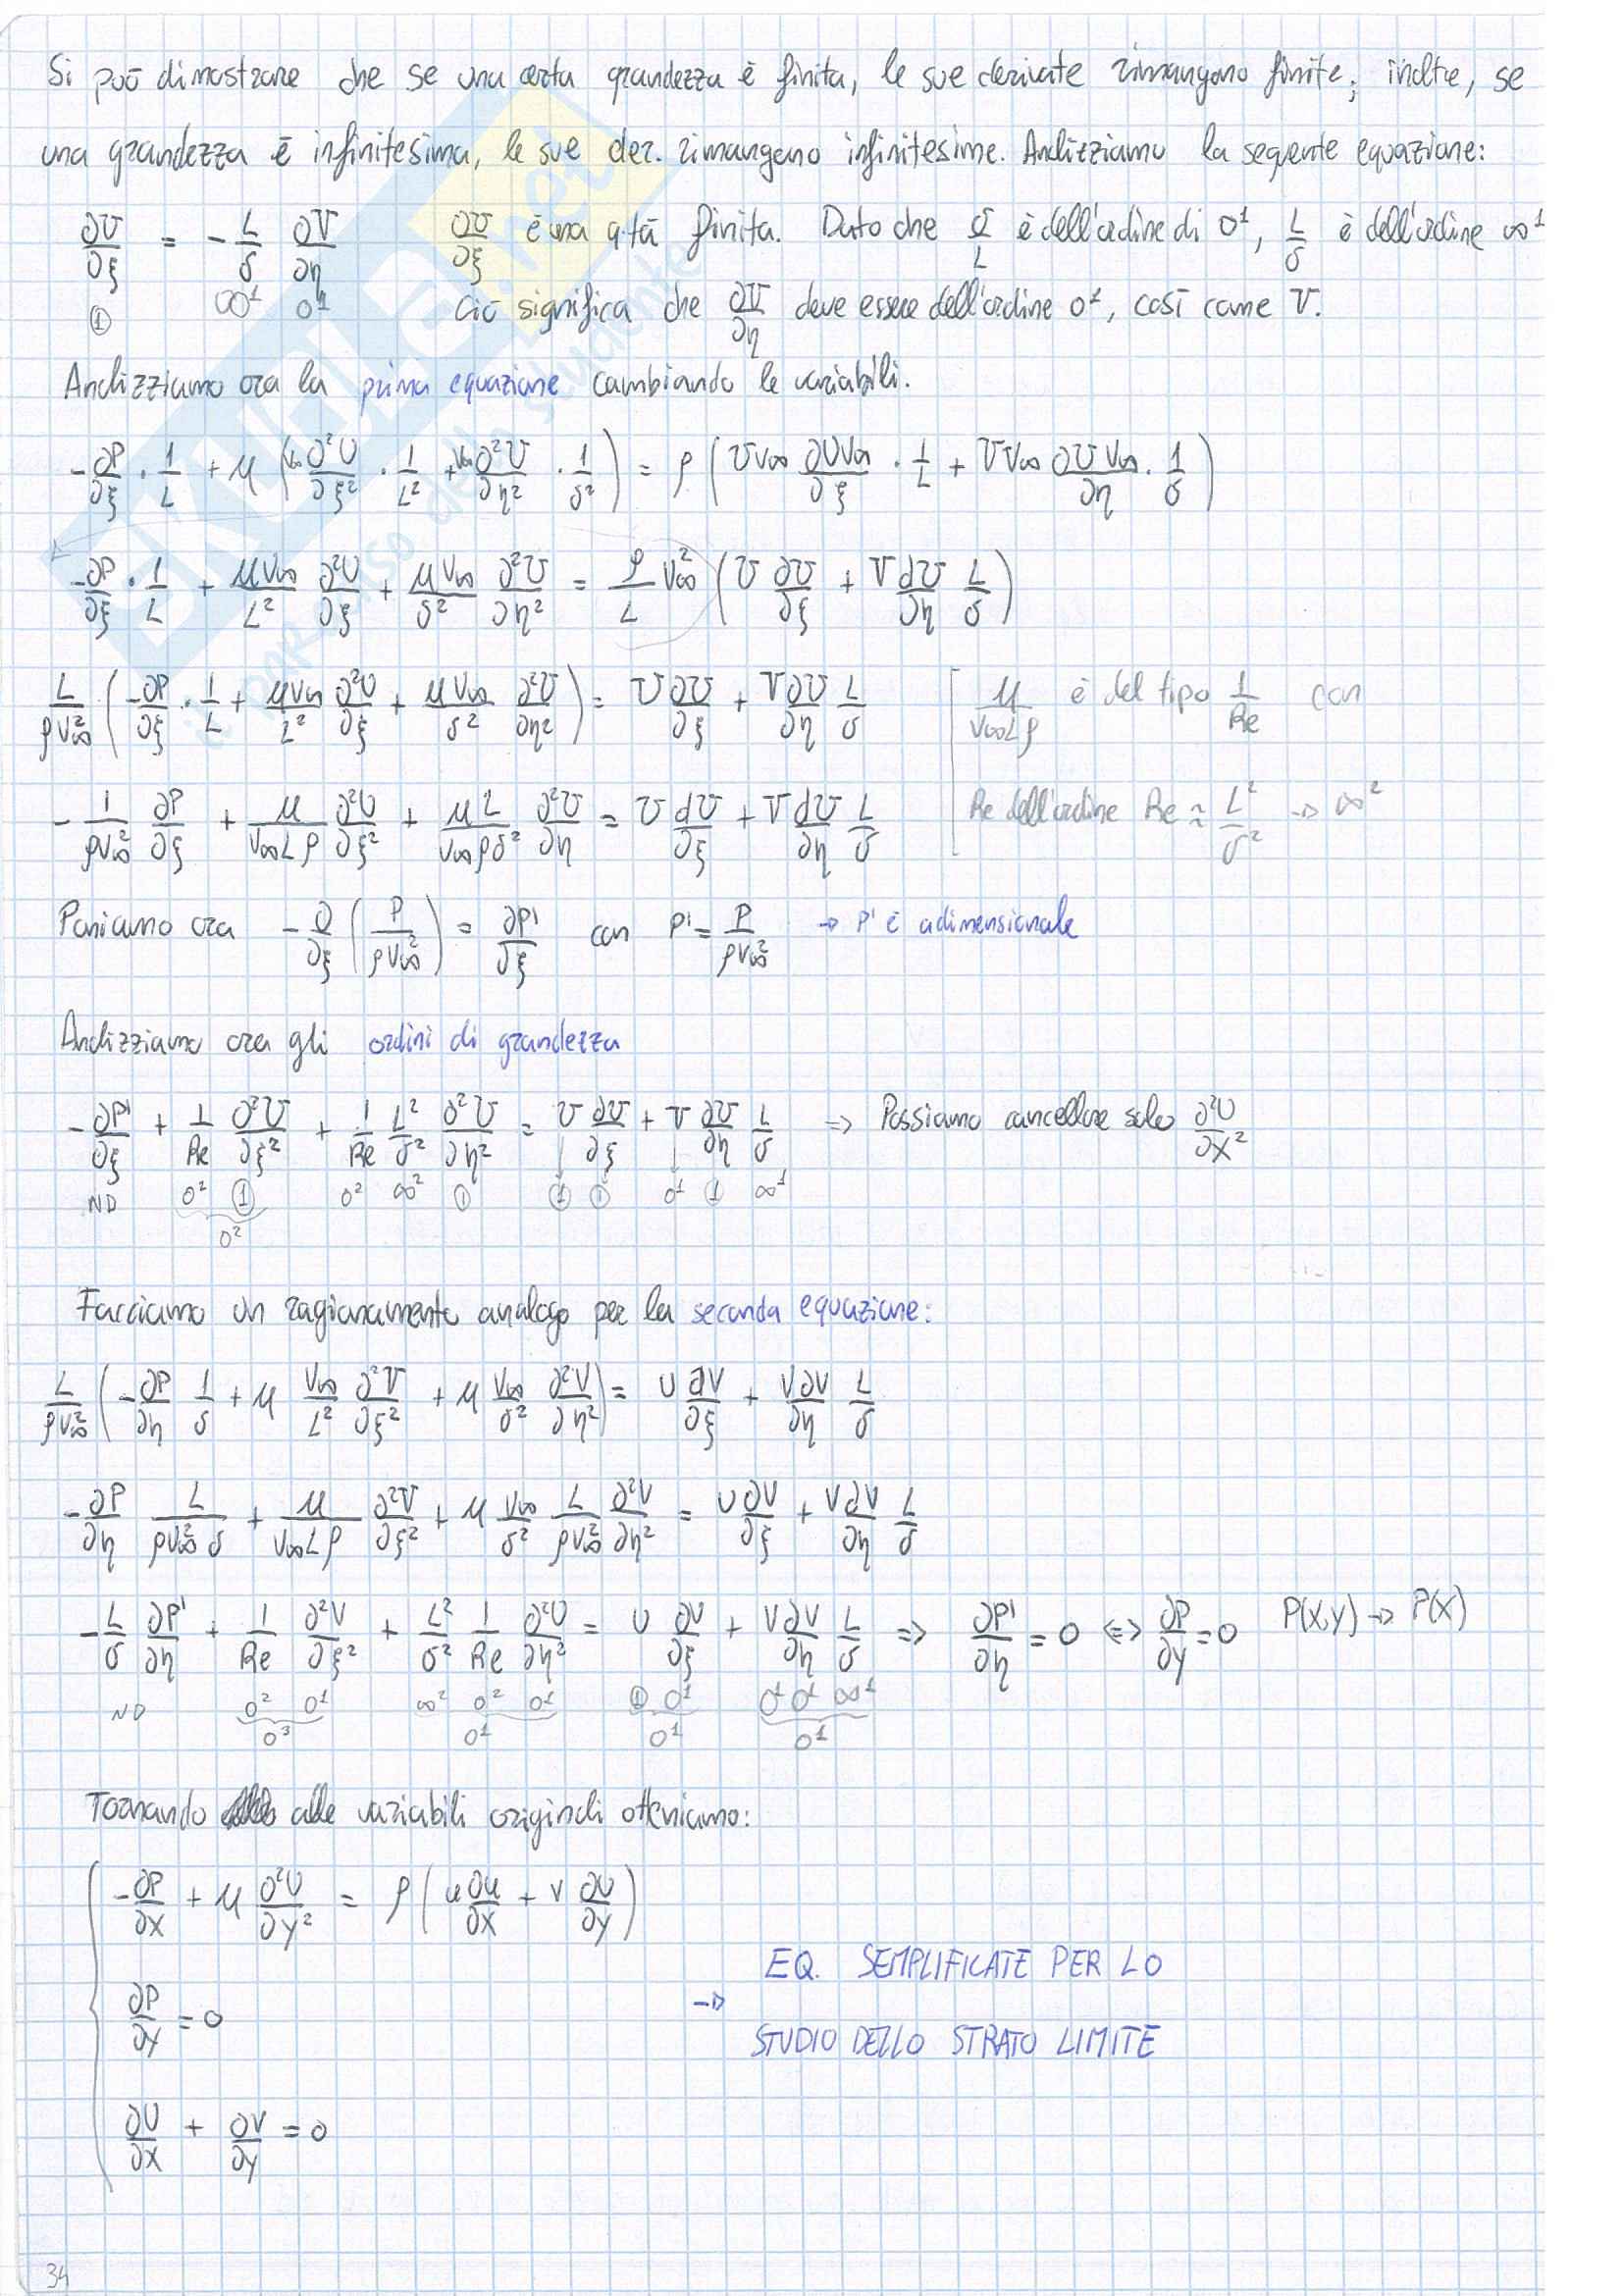 Si può dimostrare che se una certa grandezza è finita, le sue derivate rimangono finite; inoltre, se
una grandezza è infinitesima, le sue der. rimangono infinitesime. Analizziamo la seguente equazione:
∂U/∂ξ = - L/δ ∂V/∂η   ∂U/∂ξ è una q.tà finita. Dato che δ/L è dell'ordine di 0¹, L/δ è dell'ordine ∞¹
① ∞¹ 0¹   Ciò significa che ∂V/∂η deve essere dell'ordine 0¹, così come V.
Analizziamo ora la prima equazione cambiando le variabili.
-∂P/∂ξ · 1/L + μ (V∞ ∂²U/∂ξ² · 1/L² + V∞ ∂²U/∂η² · 1/δ²) = ρ (U V∞ ∂U V∞/∂ξ · 1/L + V V∞ ∂U V∞/∂η · 1/δ)
-∂P/∂ξ · 1/L + μV∞/L² ∂²U/∂ξ + μV∞/δ² ∂²U/∂η² = ρ/L V∞² (U ∂U/∂ξ + V dU/∂η L/δ)
L/ρV∞² (-∂P/∂ξ · 1/L + μV∞/L² ∂²U/∂ξ + μV∞/δ² ∂²U/∂η²) = U∂U/∂ξ + V∂U/∂η L/δ   μ/V∞Lρ è del tipo 1/Re con
- 1/ρV∞² ∂P/∂ξ + μ/V∞Lρ ∂²U/∂ξ² + μL/V∞ρδ² ∂²U/∂η = U dU/∂ξ + V dU/∂η L/δ   Re dell'ordine Re ≈ L²/δ² → ∞²
Poniamo ora -∂/∂ξ (P/ρV∞²) = ∂P'/∂ξ con P' = P/ρV∞² → P' è adimensionale
Analizziamo ora gli ordini di grandezza
-∂P'/∂ξ + 1/Re ∂²U/∂ξ² + 1/Re L²/δ² ∂²U/∂η² = U ∂U/∂ξ + V ∂U/∂η L/δ ⇒ Possiamo cancellare solo ∂²U/∂X²
ND 0² ① 0² ∞² ① ① ① 0¹ ① ∞¹
0²
Facciamo un ragionamento analogo per la seconda equazione:
L/ρV∞² (-∂P/∂η 1/δ + μ V∞/L² ∂²V/∂ξ² + μ V∞/δ² ∂²V/∂η²) = U ∂V/∂ξ + V∂V/∂η L/δ
-∂P/∂η L/ρV∞²δ + μ/V∞Lρ ∂²V/∂ξ² + μ V∞/δ² L/ρV∞² ∂²V/∂η² = U∂V/∂ξ + VdV/∂η L/δ
-L/δ ∂P'/∂η + 1/Re ∂²V/∂ξ² + L²/δ² 1/Re ∂²U/∂η² = U ∂V/∂ξ + V∂V/∂η L/δ ⇒ ∂P'/∂η = 0 ⇔ ∂P/∂y = 0 P(x,y) → P(x)
ND 0² 0¹ ∞² 0² 0¹ ① 0¹ 0¹ 0¹ ∞¹
0³ 0¹ 0¹ 0¹
Tornando alle variabili originali otteniamo:
-∂P/∂x + μ ∂²U/∂y² = ρ (u ∂u/∂x + v ∂U/∂y)
EQ. SEMPLIFICATE PER LO
∂P/∂y = 0 →
STUDIO DELLO STRATO LIMITE
∂U/∂x + ∂V/∂y = 0
34